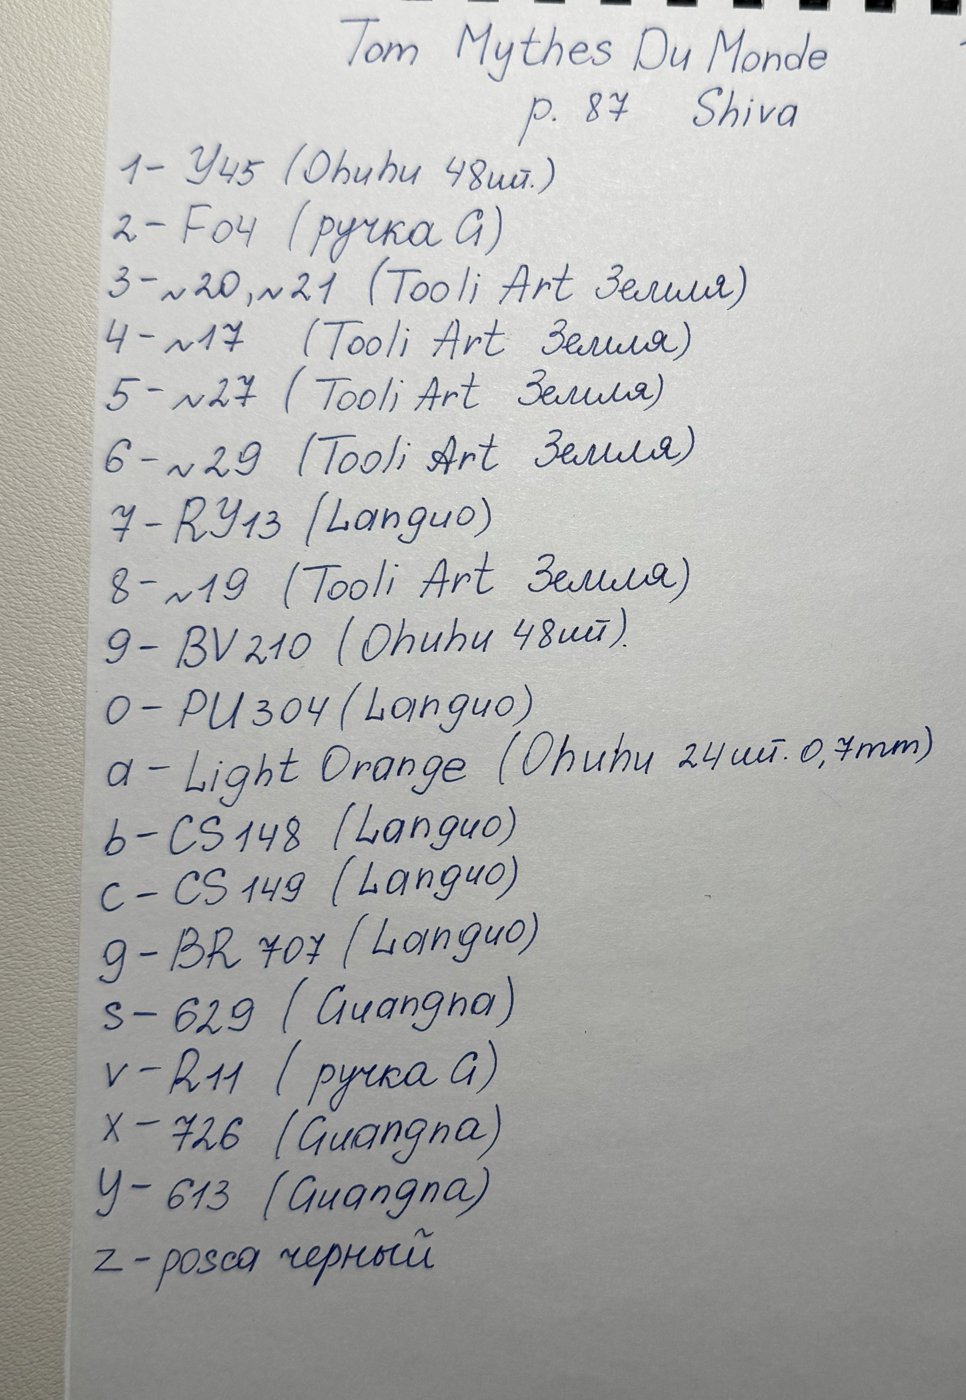 Tom Mythes Du Monde
p. 87 Shiva
1- Y45 (Ohuhu 48шт.)
2- F04 (ручка G)
3- ~20, ~21 (Tooli Art Земля)
4- ~17 (Tooli Art Земля)
5- ~27 (Tooli Art Земля)
6- ~29 (Tooli Art Земля)
7- RY13 (Languo)
8- ~19 (Tooli Art Земля)
9- BV210 (Ohuhu 48шт).
0- PU304 (Languo)
a- Light Orange (Ohuhu 24шт. 0,7mm)
b- CS148 (Languo)
c- CS149 (Languo)
g- BR 707 (Languo)
s- 629 (Guangna)
v- R11 (ручка G)
x- 726 (Guangna)
y- 613 (Guangna)
z- posca черный